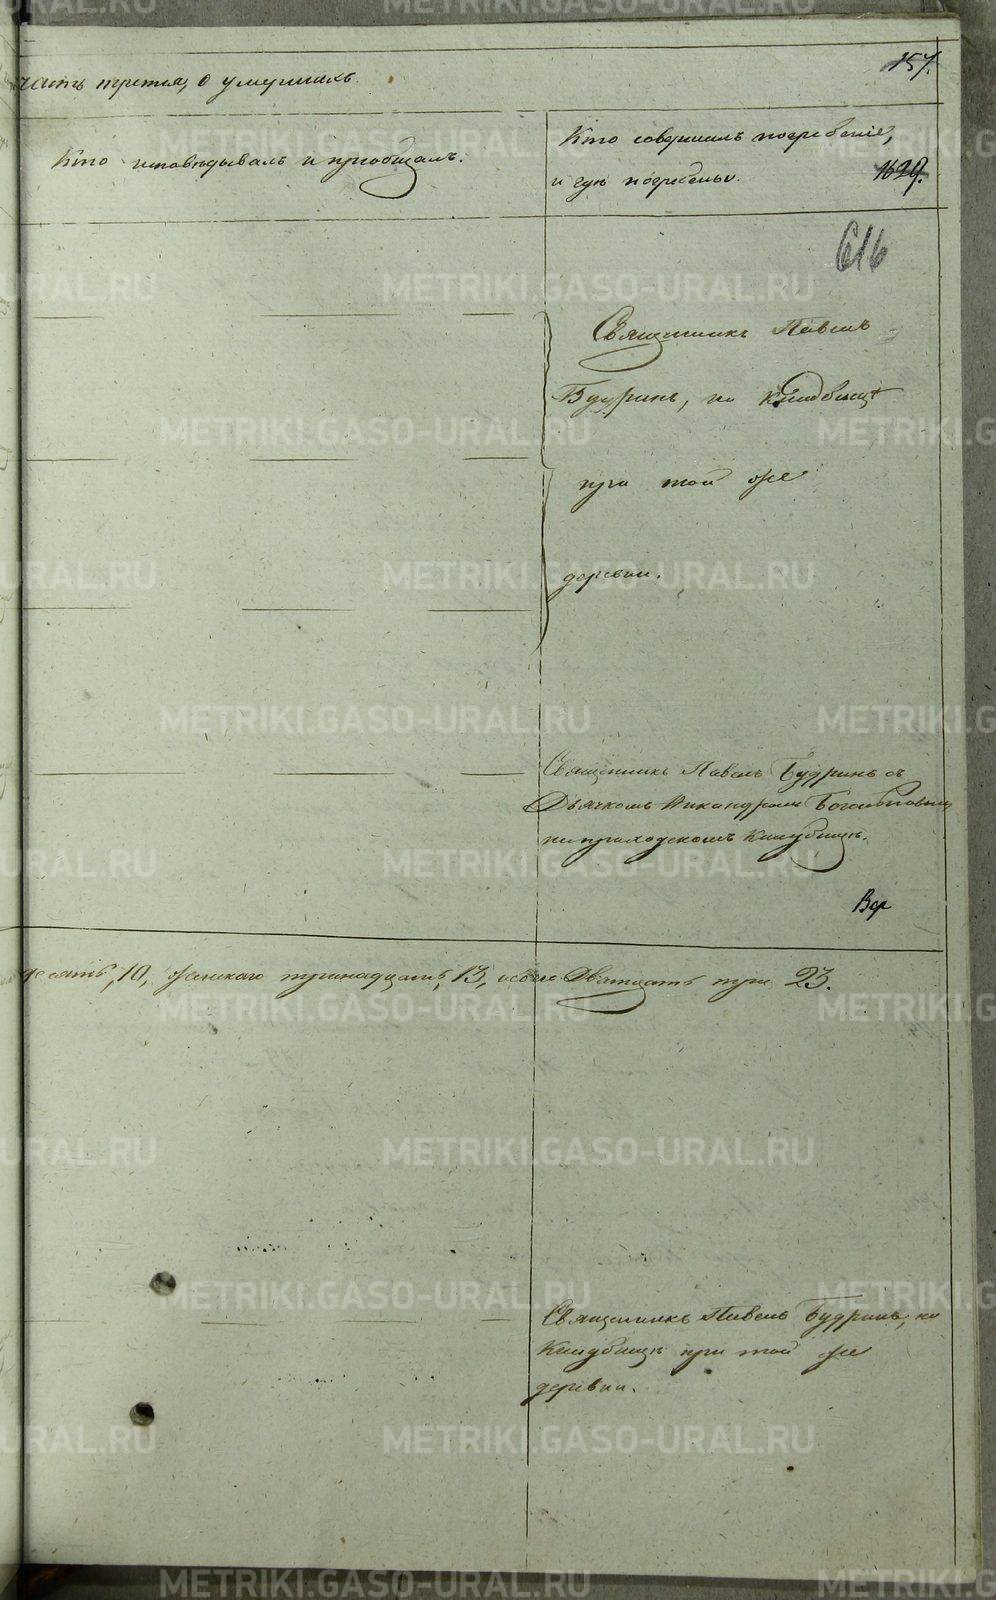 часть третья, о умершихъ.
157.
Кто исповѣдывалъ и пріобщалъ.
Кто совершалъ погребеніе,
и гдѣ погребены.
1629.
616
Священникъ Павелъ
Будринъ, на кладбищѣ
при той же
деревни.
Священникъ Павелъ Будринъ съ
Дьячкомъ Никандромъ
на приходскомъ кладбищѣ.
десять, 10, женскаго тринадцать, 13, обоего Дватцать три 23.
Священникъ Павелъ Будринъ, на
Кладбищѣ при той же
деревни.
METRIKI.GASO-URAL.RU